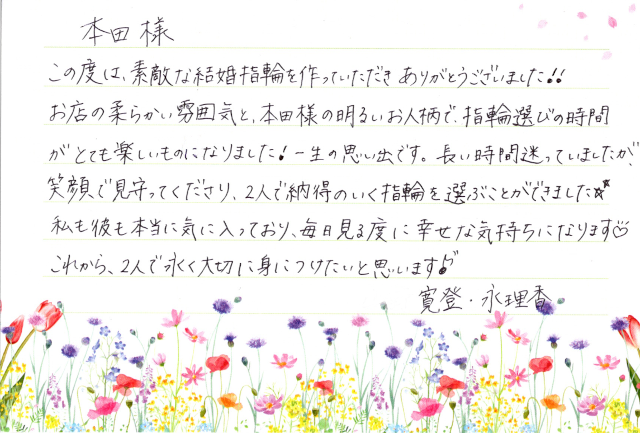 本田様
この度は、素敵な結婚指輪を作っていただき ありがとうございました!!
お店の柔らかい雰囲気と、本田様の明るいお人柄で、指輪選びの時間
がとても楽しいものになりました!一生の思い出です。長い時間迷っていましたが、
笑顔で見守ってくださり、2人で納得のいく指輪を選ぶことができました☆★
私も彼も本当に気に入っており、毎日見る度に幸せな気持ちになります♡
これから、2人で永く大切に身につけたいと思います♪
寛登・永理香